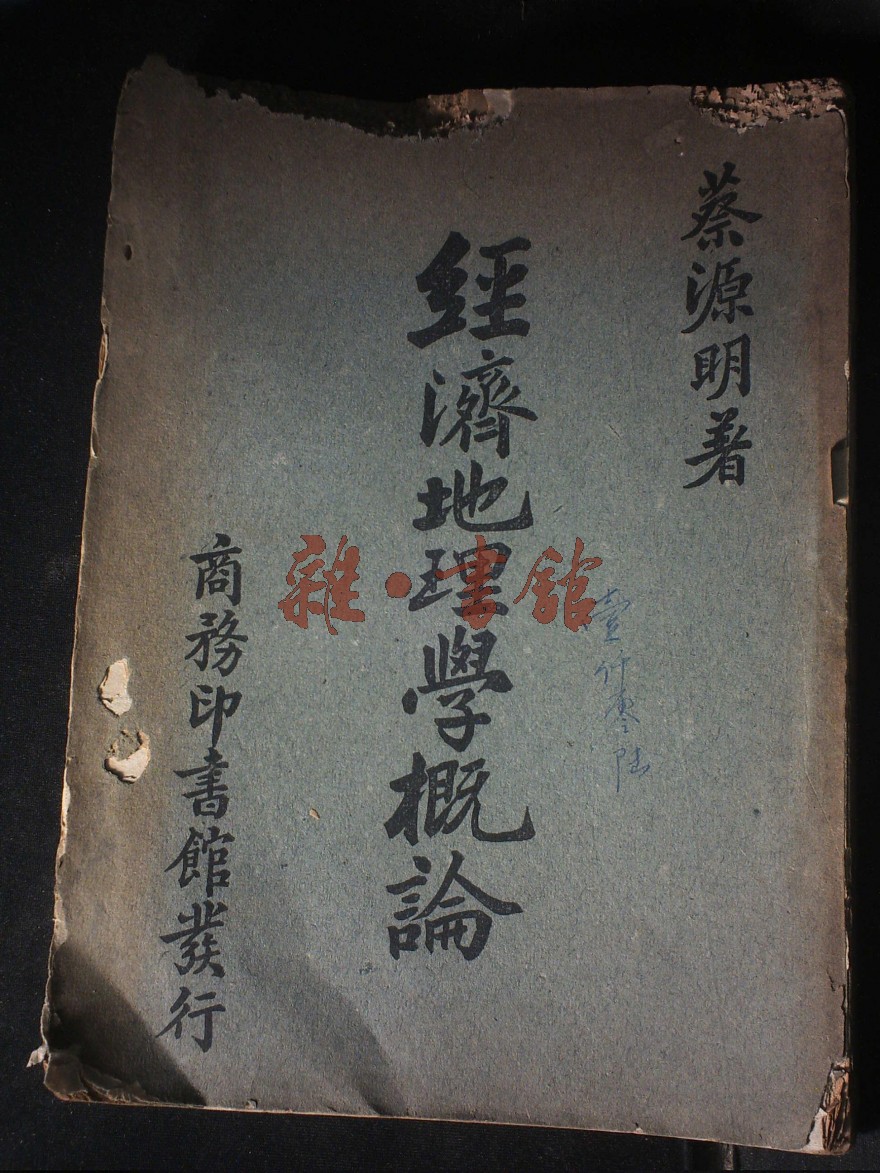 蔡源明著
經濟地理學概論
商務印書館發行
雜·書館
壹仟零陆